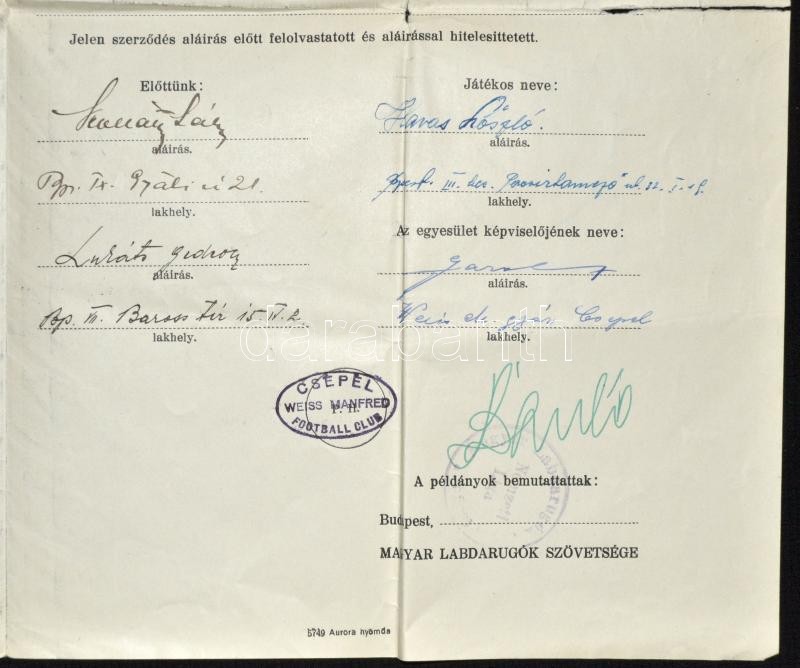 Jelen szerződés aláirás előtt felolvastatott és aláirással hitelesittetett.
Előttünk:
aláirás.
Bp. IX. Gyáli út 21.
lakhely.
Lukáts
aláirás.
Bp. VII. Baross tér 15. IV. 2.
lakhely.
Játékos neve:
Havas László.
aláirás.
III. ker. u. 32. I. 18
lakhely.
Az egyesület képviselőjének neve:
aláirás.
Weis M. gyár Csepel
lakhely.
darabanth
CSEPEL
WEISS MANFRED
P. H.
FOOTBALL CLUB
A példányok bemutattattak:
Budapest,
MAGYAR LABDARUGÓK SZÖVETSÉGE
5749 Aurora nyomda